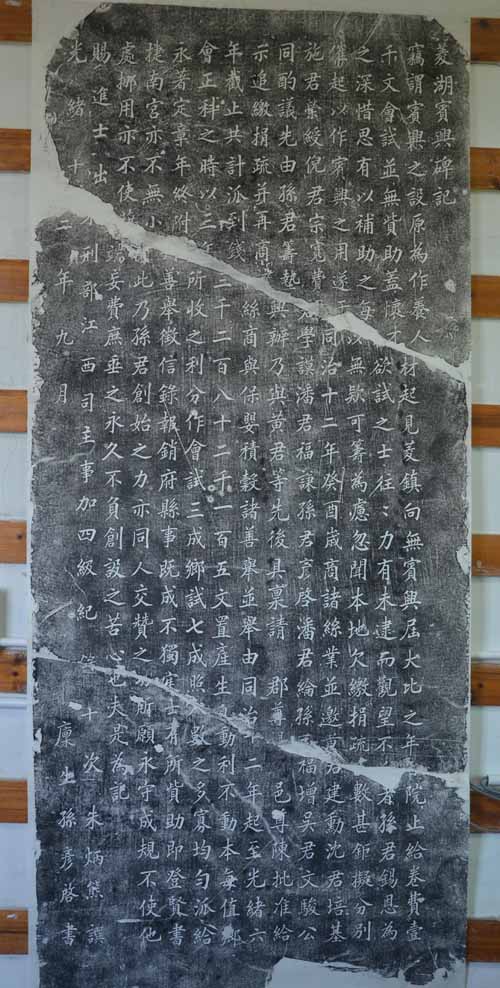 菱湖賓興碑記
竊謂賓興之設原為作養人材起見菱鎮向無賓興屆大比之年院止給卷費壹
千文會試並無貲助蓋懷才欲試之士往〻力有未逮而觀望不者孫君錫恩為
之深惜思有以補助之每以無欵可籌為慮忽聞本地欠繳捐疏數甚鉅擬分別
起以作賓興之用遂于同治十二年癸酉歲商諸絲業並邀黃君建勳沈君培基
施君紫綬倪君宗寬費學誤潘君福謙孫君彥啓潘君綸孫福增吳君文駿公
同酌議先由孫君籌墊興辦乃與黃君等先後具稟請郡尊邑尊陳批准給
示追繳捐疏并再商絲商與保嬰積穀諸善舉並舉由同治十二年起至光緒六
年截止共計派到錢三千二百八十二千一百五文置產生息動利不動本每值鄉
會正科之時以三年所收之利分作會試三成鄉試七成照人數之多寡均勻派給
永著定章年終附善舉徵信錄報銷府縣事旣成不獨寒士有所貲助卽登賢書
捷南宮亦不無小此乃孫君創始之力亦同人交贊之所願永守成規不使他
處挪用亦不使端妄費庶垂之永久不負創設之苦心也夫是為記
賜進士出刑部江西司主事加四級紀十次朱炳熊譔
光緒十二年九月廩生孫彥啓書